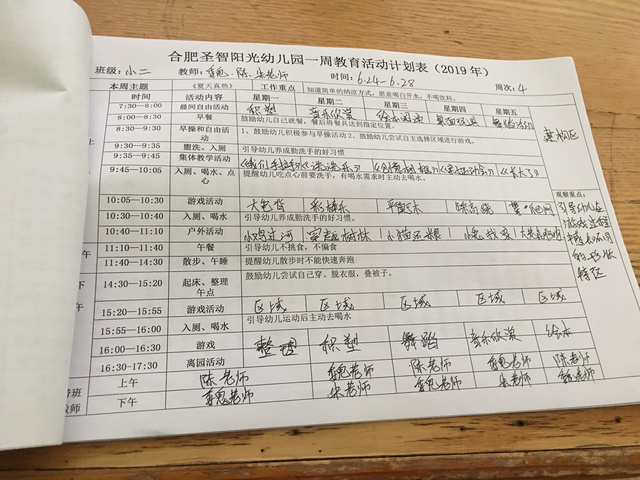 合肥圣智阳光幼儿园一周教育活动计划表（2019 年）
班级: 小二 教师: 陈、朱老师 时间: 6.24-6.28 周次: 4
本周主题 《夏天真热》 工作重点 知道简单的纳凉方式，愿意喝白开水，不喝饮料。
时间 活动内容 星期一 星期二 星期三 星期四 星期五
7:30—8:00 晨间自由活动 积塑 音乐欣赏
8:00—8:30 早餐 鼓励幼儿自己就餐，餐后将餐具送到指定位置。
8:30—9:30 早操和自由活动 1、鼓励幼儿积极参与早操活动 2、鼓励幼儿尝试自主选择区域进行游戏。
9:30—9:35 盥洗、入厕 引导幼儿养成勤洗手的好习惯
9:35—9:45 集体教学活动
9:45—10:05 入厕、喝水、点心 提醒幼儿吃点心前要洗手，有喝水需求时主动去喝水。
观察重点:
10:05—10:30 游戏活动 彩椿 平衡木
10:30—10:40 入厕、喝水 引导幼儿养成勤洗手的好习惯。
10:40—11:10 户外活动 小鸡过河 穿越树林
11:10—11:40 午餐 引导幼儿不挑食，不偏食
11:40—14:30 散步、午睡 提醒幼儿散步时不能快速奔跑
14:30—15:20 起床、整理 午点 鼓励幼儿尝试自己穿、脱衣服，叠被子。
15:20—15:55 游戏活动 区域 区域 区域 区域 区域
15:55—16:00 入厕、喝水 引导幼儿运动后主动去喝水
16:00—16:30 游戏 整理 积塑 舞蹈 音乐欣赏 绘本
16:30-17:30 离园活动
上午 陈老师 老师 陈老师 老师 陈老师
下午 老师 朱老师 老师 朱老师 老师